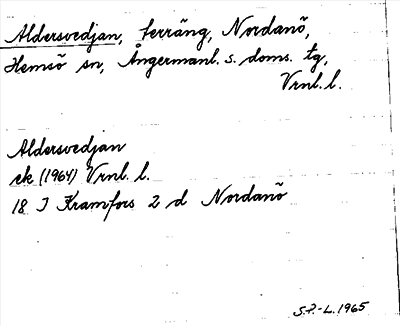 Aldersvedjan, terräng, Nordanö,
Hemsö sn, Ångermanl. s. doms. tg,
Vrnl. l.
Aldersvedjan
ek (1964) Vrnl. l.
18 I Kramfors 2 d Nordanö
S.P.-L. 1965